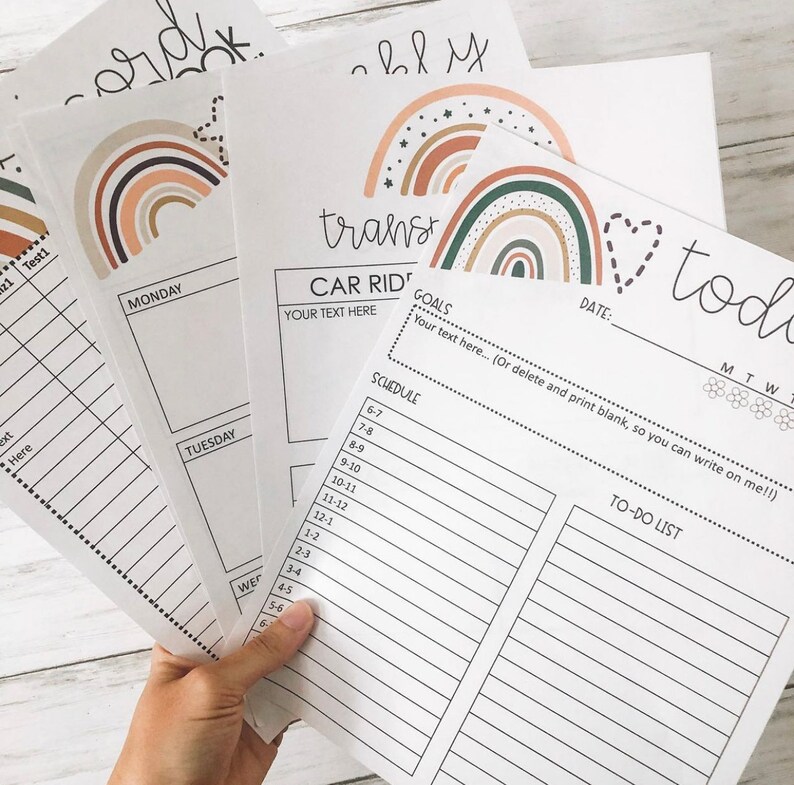 Test1
Here
MONDAY
TUESDAY
CAR RIDE
YOUR TEXT HERE
DATE:
M T W
GOALS
Your text here... (Or delete and print blank, so you can write on me!!)
SCHEDULE
6-7
7-8
8-9
9-10
10-11
11-12
12-1
1-2
2-3
3-4
4-5
5-6
TO-DO LIST